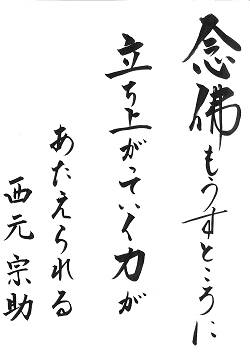 念佛もうすところに
立ち上がっていく力が
あたえられる
西元宗助